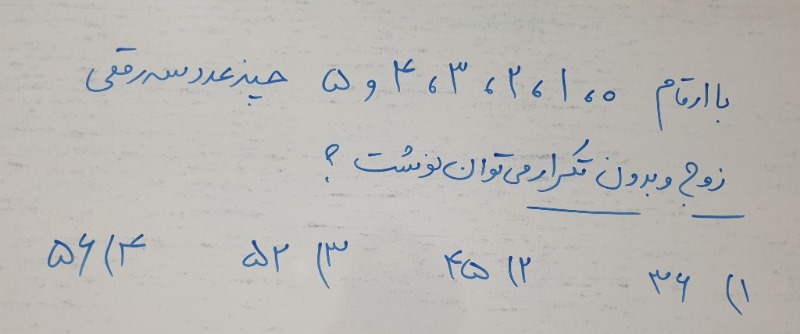 با ارقام ۰، ۱، ۲، ۳، ۴ و ۵ چند عدد سه رقمی
زوج و بدون تکرار می توان نوشت ؟
۱) ۳۶ ۲) ۴۵ ۳) ۵۲ ۴) ۵۶